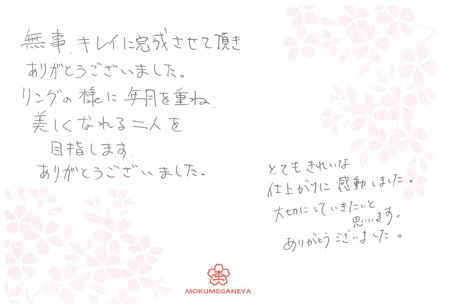 無事、キレイに完成させて頂き
ありがとうございました。
リングの様に 毎月を重ね、
美しくなれる二人を
目指します。
ありがとうございました。
とてもきれいな
仕上がりに 感動しました。
大切にしていきたいと
思います。
ありがとうございました。
MOKUMEGANEYA